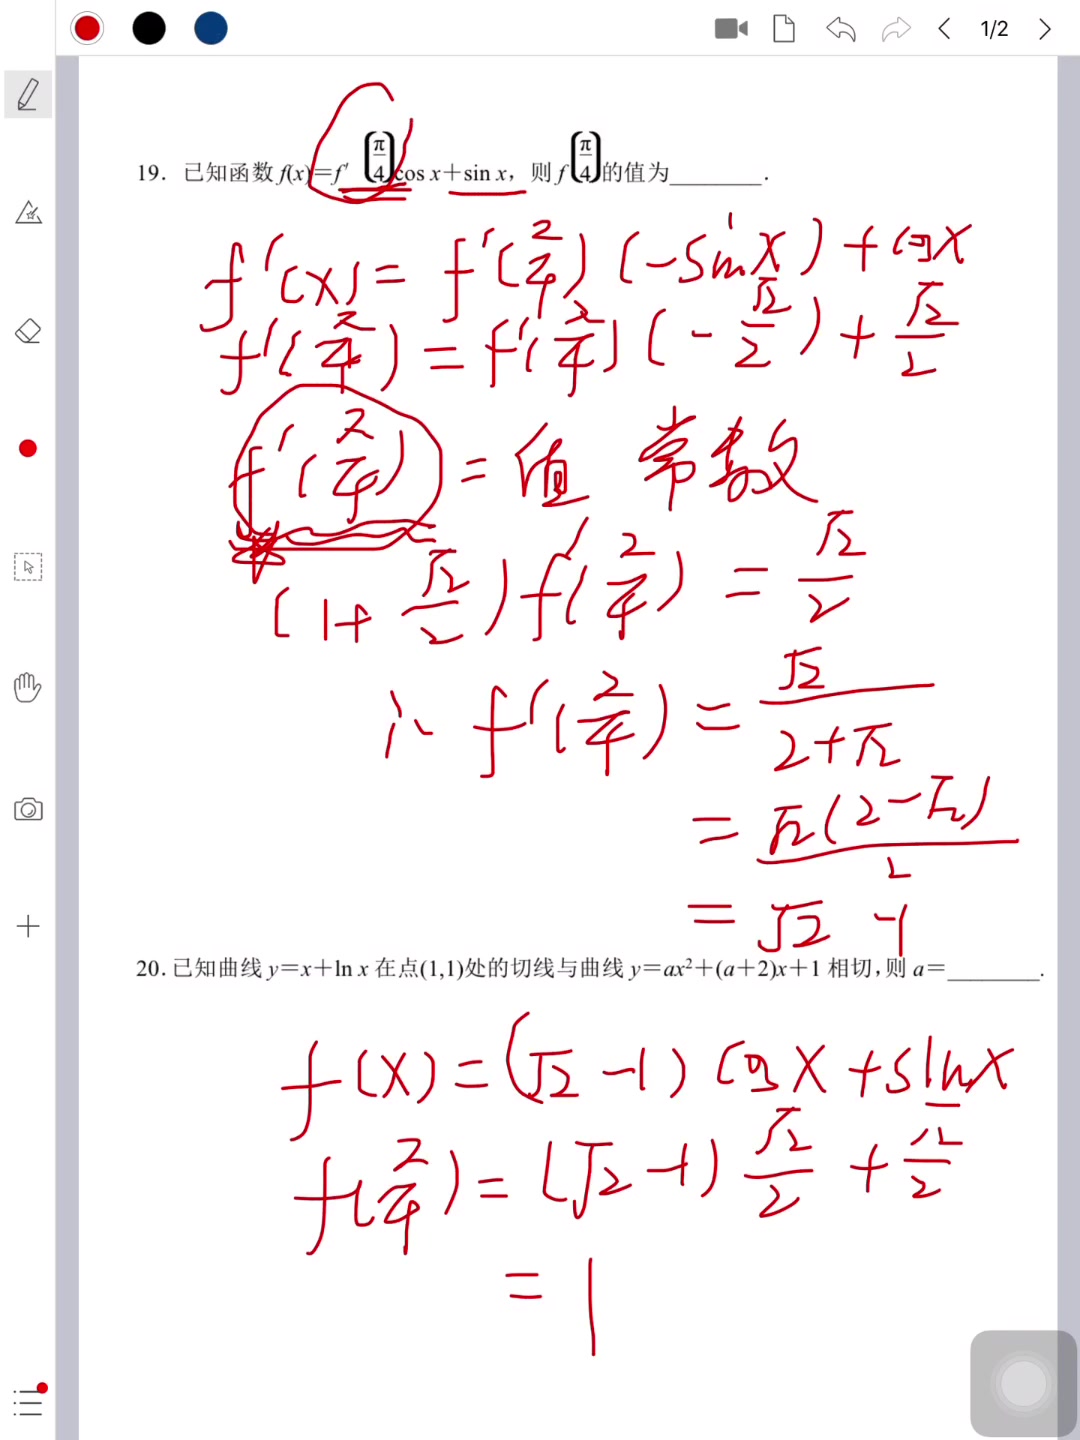 1/2
19. 已知函数 f(x)=f′(π/4)cos x+sin x，则 f(π/4)的值为________.
f'(x) = f'(π/4) (-sin x) + cos x
f'(π/4) = f'(π/4) (-√2/2) + √2/2
f'(π/4) = 值 常数
(1+√2/2) f'(π/4) = √2/2
∴ f'(π/4) = √2/(2+√2)
= √2(2-√2)/2
= √2 -1
20. 已知曲线 y=x+ln x 在点(1,1)处的切线与曲线 y=ax²+(a+2)x+1 相切，则 a=________.
f(x) = (√2-1) cos x + sin x
f(π/4) = (√2-1) √2/2 + √2/2
= 1